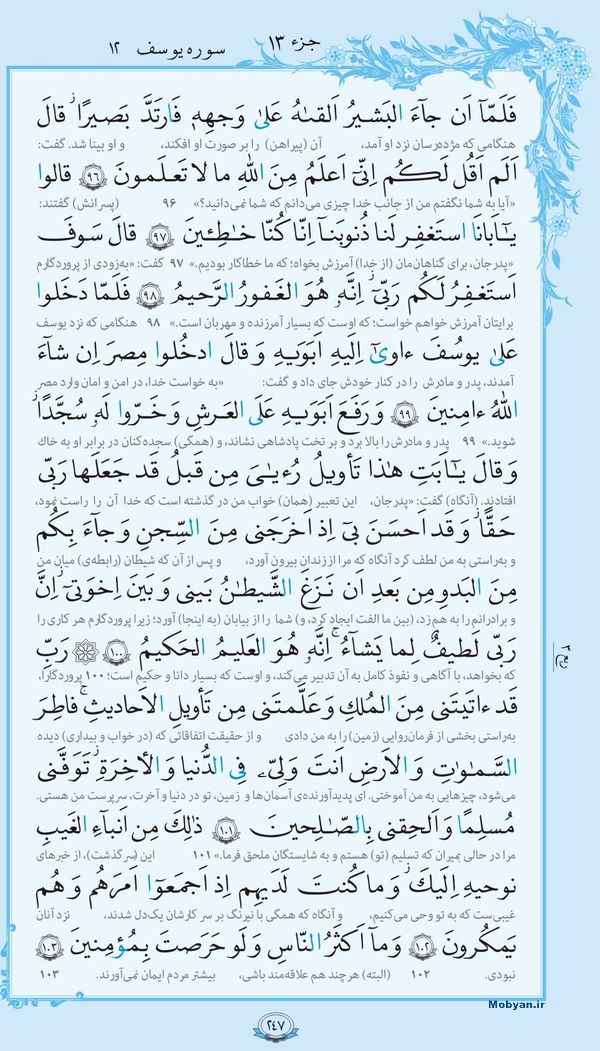 جزء ۱۳ سوره یوسف ۱۲
فَلَمّا اَن جاءَ البَشيرُ اَلقىٰهُ عَلىٰ وَجهِهٖ فَارتَدَّ بَصيرًا ۖ قالَ
هنگامی که مژده‌رسان نزد او آمد، آن (پیراهن) را بر صورت او افکند، و او بینا شد. گفت:
اَلَم اَقُل لَكُم اِنّي اَعلَمُ مِنَ اللّٰهِ ما لا تَعلَمونَ ۹۶ قالوا
«آیا به شما نگفتم من از جانب خدا چیزی می‌دانم که شما نمی‌دانید؟» ۹۶ (پسرانش) گفتند:
يٰاَبانَا استَغفِر لَنا ذُنوبَنا اِنّا كُنّا خاطِـٔينَ ۹۷ قالَ سَوفَ
«پدرجان، برای گناهان‌مان (از خدا) آمرزش بخواه؛ که ما خطاکار بودیم.» ۹۷ گفت: «به‌زودی از پروردگارم
اَستَغفِرُ لَكُم رَبّي ۖ اِنَّهٗ هُوَ الغَفورُ الرَّحيمُ ۹۸ فَلَمّا دَخَلوا
برایتان آمرزش خواهم خواست؛ که اوست که بسیار آمرزنده و مهربان است.» ۹۸ هنگامی که نزد یوسف
عَلىٰ يوسُفَ ءاوىٰ اِلَيهِ اَبَوَيهِ وَ قالَ ادخُلوا مِصرَ اِن شاءَ
آمدند، پدر و مادرش را در کنار خودش جای داد و گفت: «به خواست خدا، در امن و امان وارد مصر
اللّٰهُ ءامِنينَ ۹۹ وَ رَفَعَ اَبَوَيهِ عَلَى العَرشِ وَ خَرّوا لَهٗ سُجَّدًا ۖ
شوید.» ۹۹ پدر و مادرش را بالا برد و بر تخت پادشاهی نشاند، و (همگی) سجده‌کنان در برابر او به خاك
وَ قالَ يٰاَبَتِ هٰذا تَأويلُ رُءيٰيَ مِن قَبلُ قَد جَعَلَها رَبّي
افتادند. (آنگاه) گفت: «پدرجان، این تعبیر (همان) خواب من در گذشته است که خدا آن را راست نمود،
حَقًّا ۖ وَ قَد اَحسَنَ بي اِذ اَخرَجَني مِنَ السِّجنِ وَ جاءَ بِكُم
و به‌راستی به من لطف کرد آنگاه که مرا از زندان بیرون آورد، و پس از آن که شیطان (رابطه‌ی) میان من
مِنَ البَدوِ مِن بَعدِ اَن نَزَغَ الشَّيطٰنُ بَيني وَ بَينَ اِخوَتي ۚ اِنَّ
و برادرانم را به هم زد، (بین ما الفت ایجاد کرد، و) شما را از بیابان (به اینجا) آورد؛ زیرا پروردگارم هر کاری را
رَبّي لَطيفٌ لِما يَشاءُ ۚ اِنَّهٗ هُوَ العَليمُ الحَكيمُ ۱۰۰ رَبِّ
که بخواهد، با آگاهی و نفوذ کامل به آن تدبیر می‌کند، و اوست که بسیار دانا و حکیم است؛ ۱۰۰ پروردگارا،
قَد ءاتَيتَني مِنَ المُلكِ وَ عَلَّمتَني مِن تَأويلِ الاَحاديثِ ۚ فاطِرَ
به‌راستی بخشی از فرمان‌روایی (زمین) را به من دادی و از حقیقت اتفاقاتی که (در خواب و بیداری) دیده
السَّماواتِ وَ الاَرضِ اَنتَ وَلِيّي فِي الدُّنيا وَ الآخِرَةِ ۖ تَوَفَّني
می‌شود، چیزهایی به من آموختی. ای پدیدآورنده‌ی آسمان‌ها و زمین، تو در دنیا و آخرت، سرپرست من هستی.
مُسلِمًا وَ اَلحِقني بِالصّالِحينَ ۱۰۱ ذٰلِكَ مِن اَنباءِ الغَيبِ
مرا در حالی بمیران که تسلیم (تو) هستم و به شایستگان ملحق فرما.» ۱۰۱ این (سرگذشت)، از خبرهای
نوحيهِ اِلَيكَ ۖ وَ ما كُنتَ لَدَيهِم اِذ اَجمَعوا اَمرَهُم وَ هُم
غیبی‌ست که به تو وحی می‌کنیم، و آنگاه که همگی با نیرنگ بر سر کارشان یک‌دل شدند، نزد آنان
يَمكُرونَ ۱۰۲ وَ ما اَكثَرُ النّاسِ وَ لَو حَرَصتَ بِمُؤمِنينَ ۱۰۳
نبودی. ۱۰۲ (البته) هر چند هم علاقه‌مند باشی، بیشتر مردم ایمان نمی‌آورند. ۱۰۳
۲۴۷
Mobyan.ir